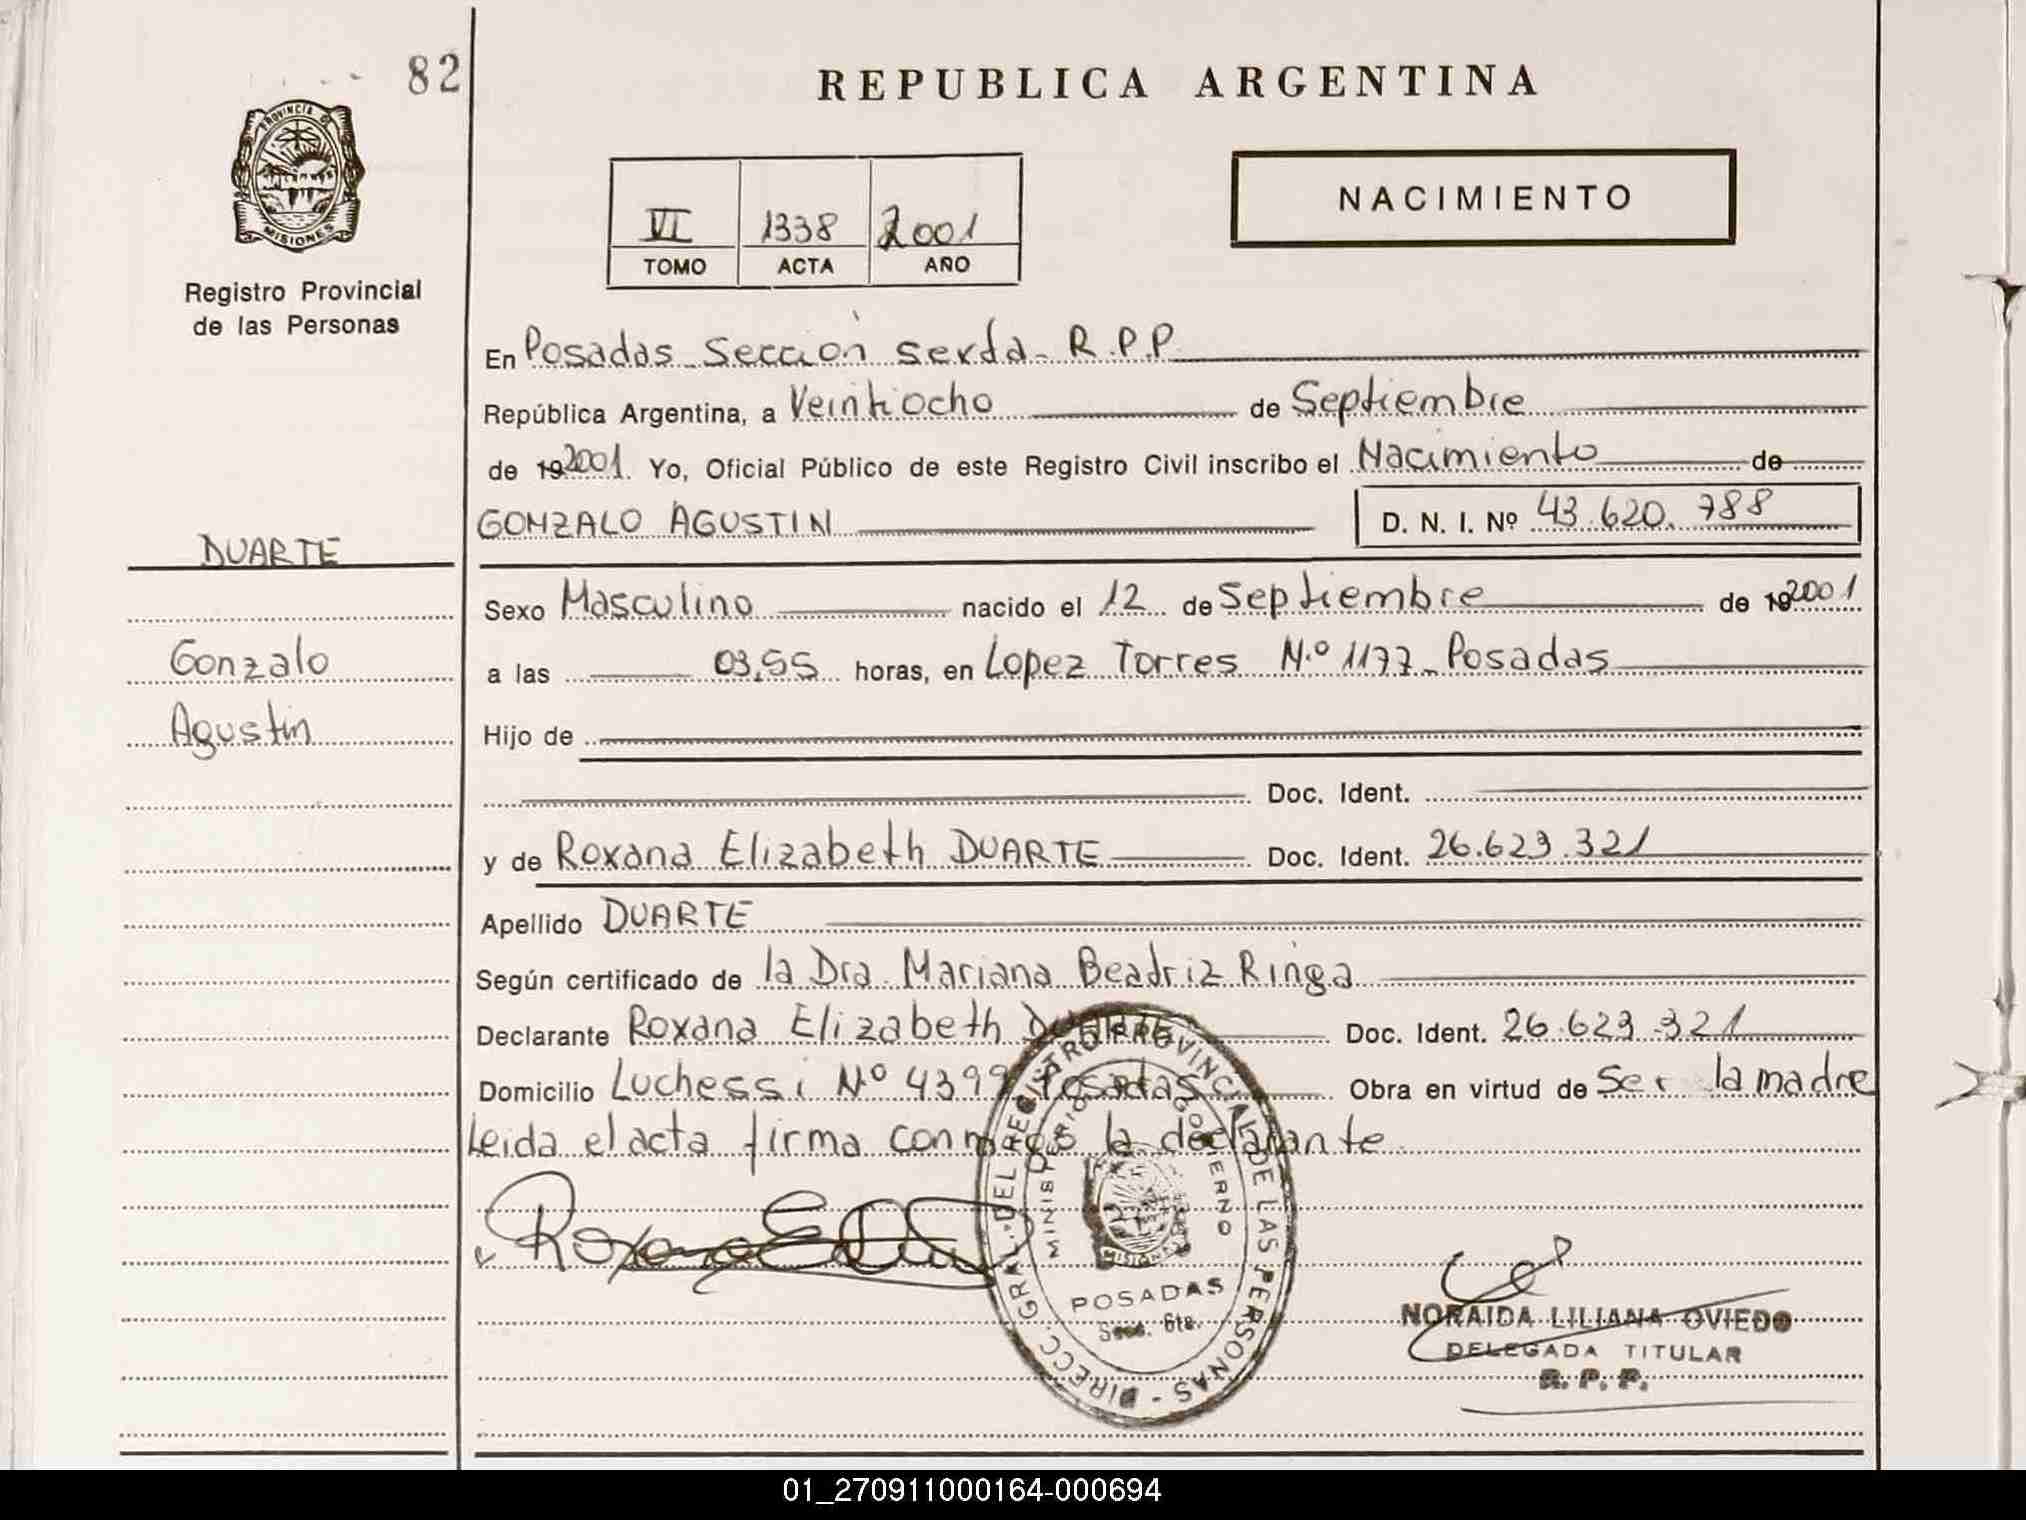 82
REPUBLICA ARGENTINA
PROVINCIA DE
MISIONES
Registro Provincial
de las Personas
NACIMIENTO
VI 1338 2001
TOMO ACTA AÑO
En Posadas Sección sexta R.P.P.
República Argentina, a Veintiocho de Septiembre
de 192001. Yo, Oficial Público de este Registro Civil inscribo el Nacimiento de
GONZALO AGUSTIN D. N. I. Nº 43.620.788
DUARTE
Gonzalo
Agustin
Sexo Masculino nacido el 12 de Septiembre de 192001
a las 03,55 horas, en Lopez Torres N.º 1177 Posadas
Hijo de
Doc. Ident.
y de Roxana Elizabeth DUARTE Doc. Ident. 26.623.321
Apellido DUARTE
Según certificado de la Dra Mariana Beatriz Ringa
Declarante Roxana Elizabeth DUARTE Doc. Ident. 26.623.321
Domicilio Luchessi Nº 4399 Posadas Obra en virtud de Ser la madre
Leida el acta firma conmigo la declarante
DIRECC. GRAL. DEL REGISTRO PROVINCIAL DE LAS PERSONAS -
MINISTERIO DE GOBIERNO
MISIONES
POSADAS
Secc. 6ta.
NORAIDA LILIANA OVIEDO
DELEGADA TITULAR
R. P. P.
01_270911000164-000694